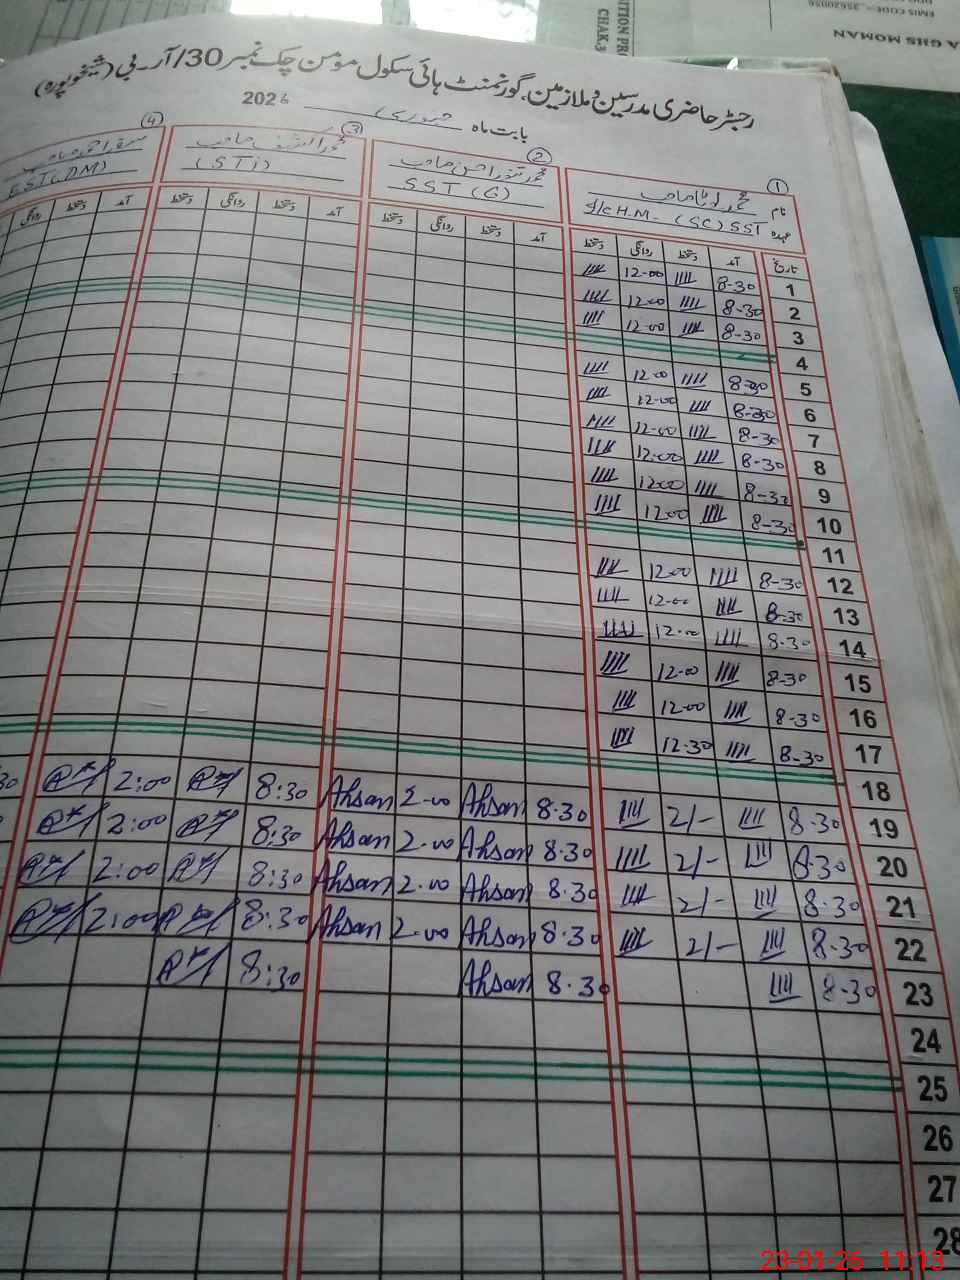 EMIS CODE = 35620056
A GHS MOMAN
CHAK.3
رجسٹر حاضری مدرسین و ملازمین۔ گورنمنٹ ہائی سکول مومن چک نمبر 30/آر۔بی (شیخوپورہ)
بابت ماہ جنوری 2026
① ② ③ ④
نام
عہدہ I/C H.M - (SC) SST SST (G) (STi) EST (DM)
تاریخ آمد دستخط روانگی دستخط آمد دستخط روانگی دستخط آمد دستخط روانگی دستخط آمد دستخط روانگی
1 8-30 12-00
2 8-30 12-00
3 8-30 12-00
4
5 8-30 12-00
6 8-30 12-00
7 8-30 12-00
8 8-30 12-00
9 8-30 12-00
10 8-30 12-00
11
12 8-30 12-00
13 8-30 12-00
14 8-30 12-00
15 8-30 12-00
16 8-30 12-00
17 8-30 12-30
18
19 8-30 2/- 8.30 Ahsan 2.00 Ahsan 8:30 2:00
20 8-30 2/- 8.30 Ahsan 2.00 Ahsan 8:30 2:00
21 8-30 2/- 8.30 Ahsan 2.00 Ahsan 8:30 2:00
22 8-30 2/- 8.30 Ahsan 2.00 Ahsan 8:30 2:00
23 8-30 8.30 Ahsan 8:30
24
25
26
27
28
23-01-26 11:13